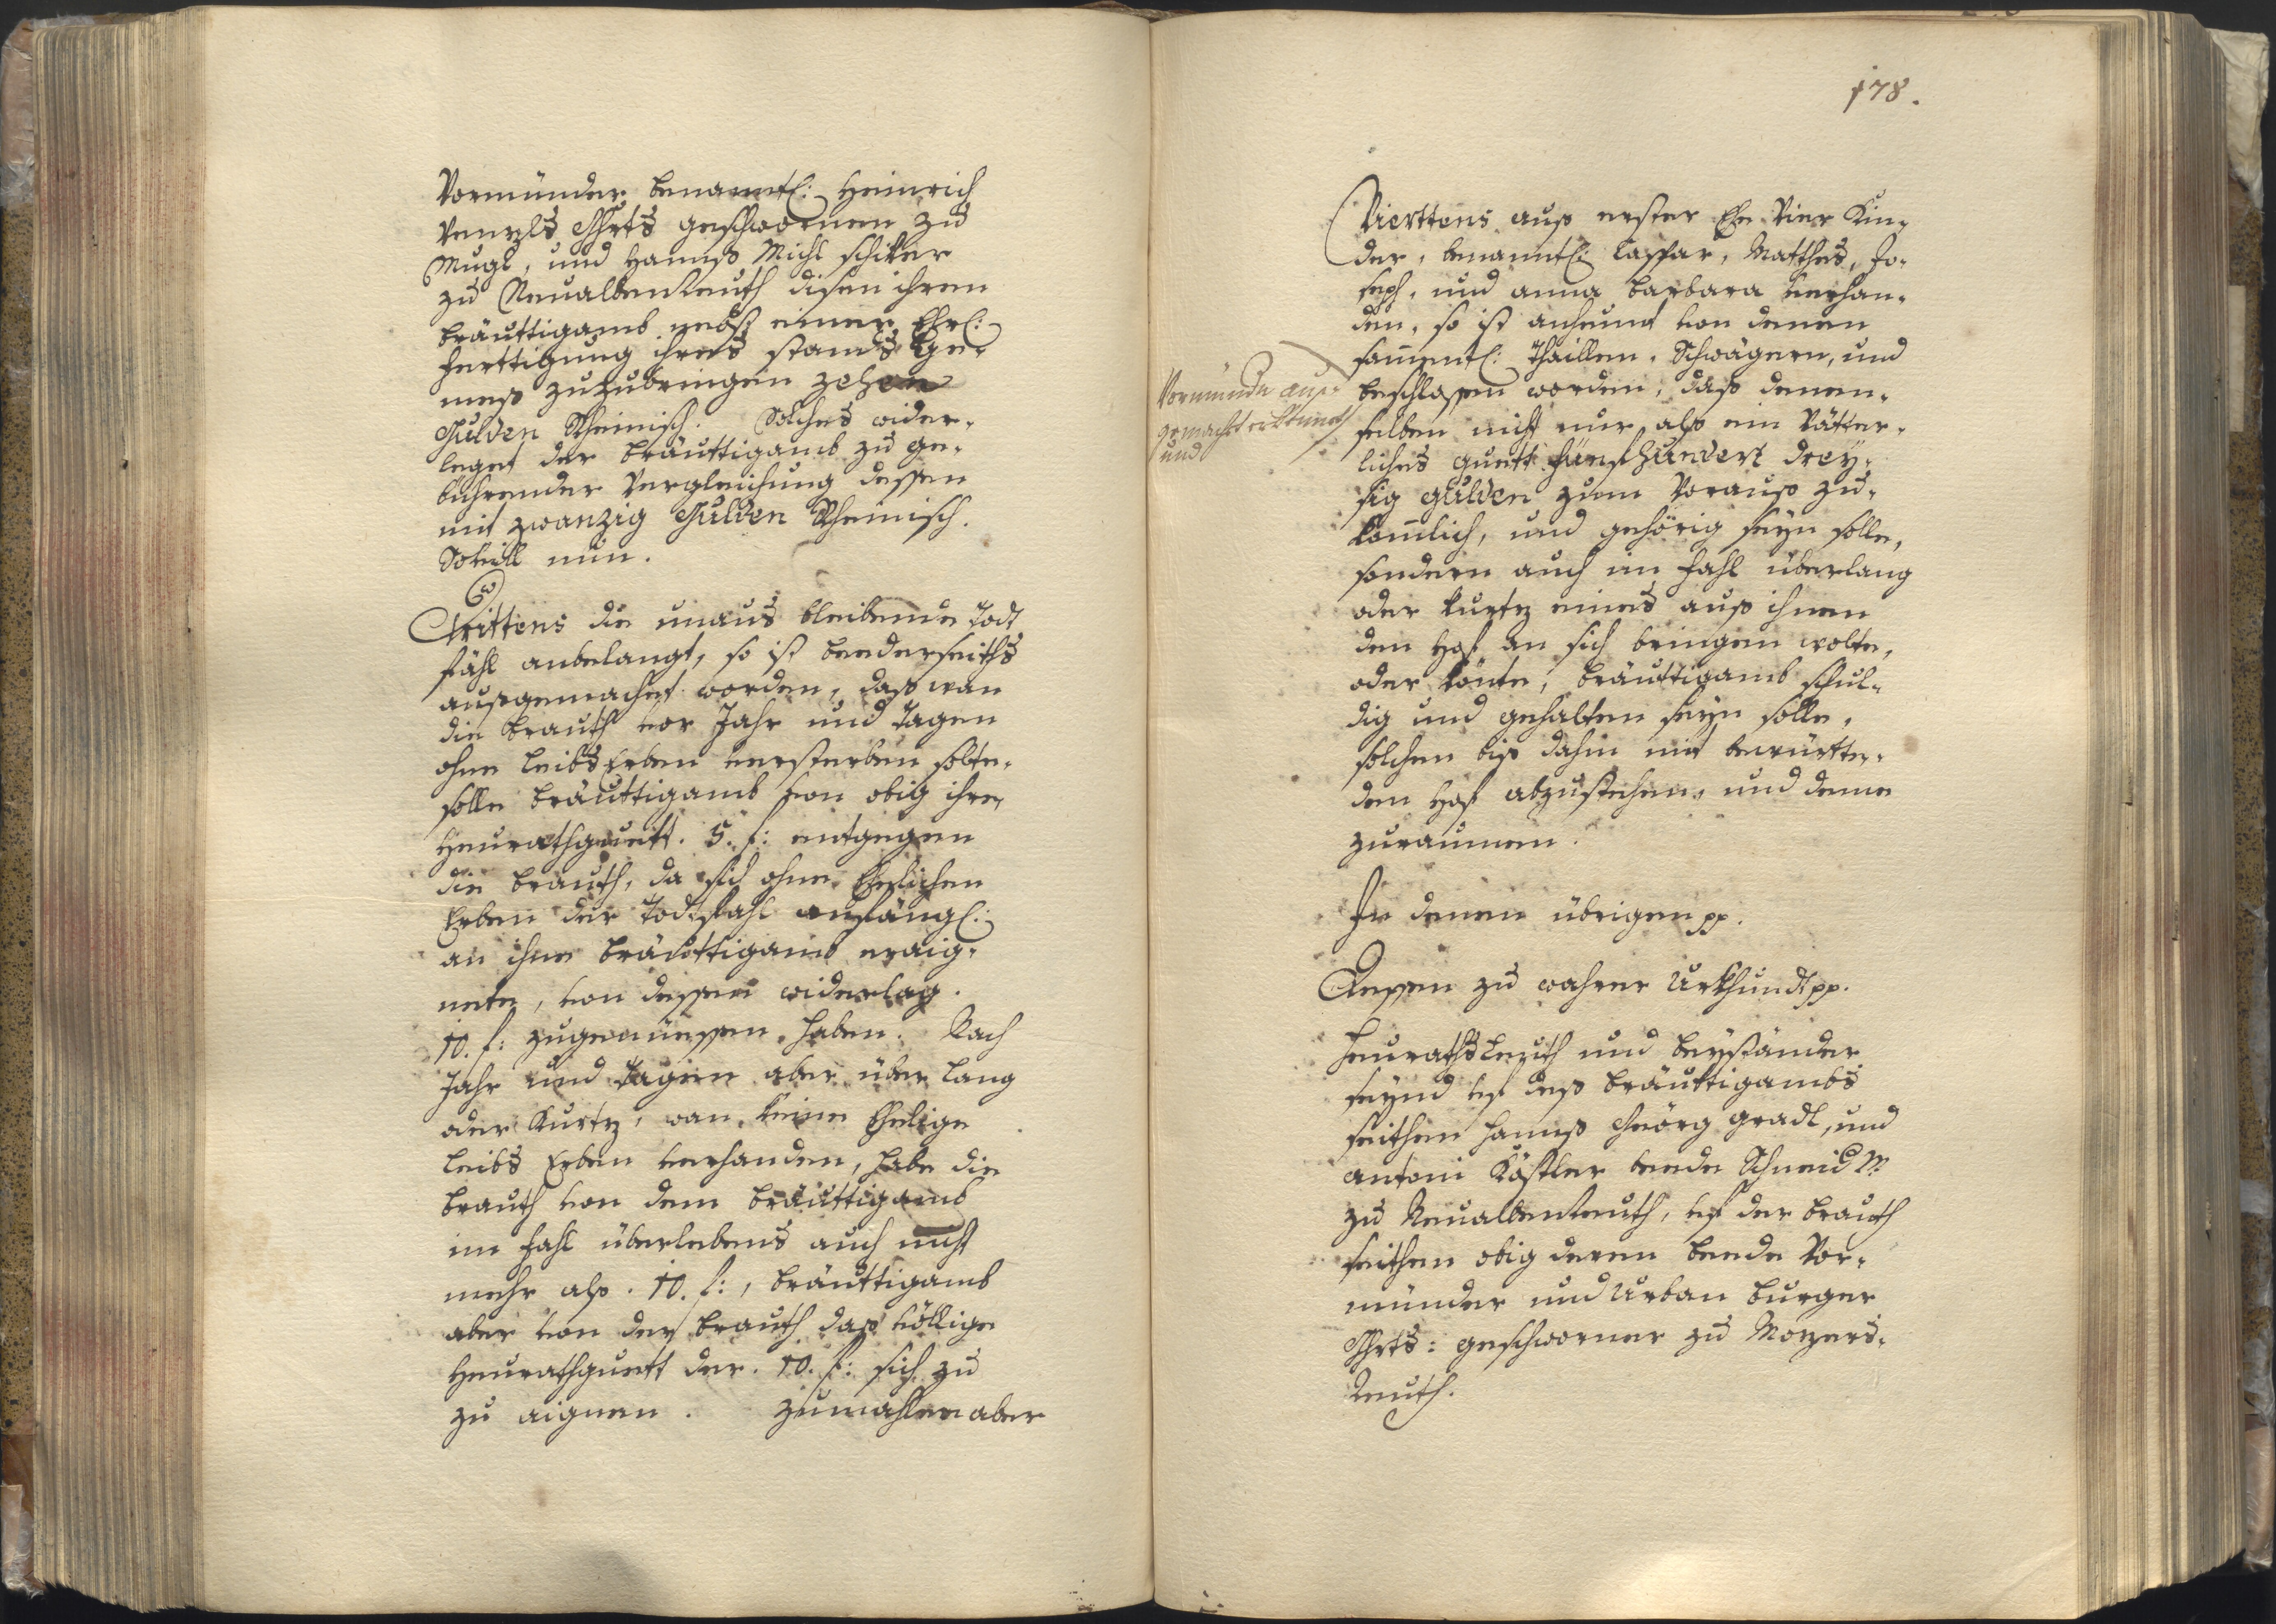 Vormünder benanntl: Heinrich
Wenzls Ghrts geschwornen zu
Mugl, und Hannß Michl schiker
zu Neualbenreuth disen ihren
bräuttigamb nebst einer Ehrl:
Ferttigung ihres stands ge-
meß zuzubringen zehen
Gulden Rheinisch. Solches wider-
leget der bräuttigamb zu ge-
bührender Vergleichung dessen
mit zwanzig Gulden Rheinisch.
Sovill nun.
Drittens die unaus bleibende Todt
fähl anbelangt, so ist beederseiths
außgemachet worden, daß wan
die brauth vor Jahr und Tagen
ohne leibs Erben versterben solte,
solle bräuttigamb von obig ihren
Heurathguett. 5. f: entgegen
die brauth, da sich ohne Ehelichen
Erben der Todtfahl anfängl:
an ihne bräuttigamb eraig-
nete, von dessen widerlag.
10. f: zugenüessen haben. Nach
Jahr und Tagen aber über lang
oder Kurtz, wan keine Ehelige
leibs Erben verhanden, habe die
brauth von dem bräuttigamb
im fahl überlebens auch nicht
mehr alß. 10. f:, bräuttigamb
aber von der brauth daß völlige
Heurathguett der. 10. f: sich zu
zu aignen. Zumahlen aber
178.
Vierttens auß erster Ehe Vier Kin-
der, benanntl: Caspar, Matthes, Jo-
seph, und anna barbara verhan-
den, so ist anheunt von denen
sammentl: Thaillen, Schwägern, und
Vormünde auß-
gemacht
und
beschlossen worden, daß denen-
selben nicht nur alß ein Vätter-
liches guett fünfhundert drey-
sig gulden zum Vorauß zu-
komlich, und gehörig seyn solle,
sondern auch im fahl überlang
oder kurtz eines auß ihnen
den Hof an sich bringen wolte,
oder könte, bräuttigamb schul-
dig und gehalten seyn solle,
solchen biß dahin mit
den Hof abzustehen, und deme
zuraumen.
In denen übrigen pp.
Dessen zu wahrer Urkhundt pp.
Heurathsleuth und beyständer
seynd uf deß bräuttigambs
seithen Hannß Geörg gradl, und
antoni Köstler beede Schneid Mr
zu Neualbenreuth, uf der brauth
seithen obig deren beede Vor-
münder und Urban burger
Ghrts: geschworner zu Mozers-
Reuth.